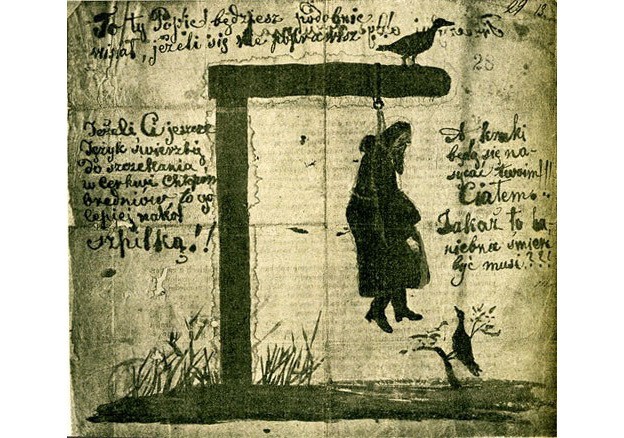 To ty Popie! będziesz podobnie
wisiał, jeżeli się nie poprawisz psie!!
29 13.
28
Jeżeli Ci jeszcze
Język świerzbi
do szczekania
w Cerkwi Chłopom
bredniow, to go
lepiej nakol
szpilką!!
A kruki
będą się na-
sycać twoim!!
Ciałem..
Jakaż to ha-
niebna śmierć
być musi???!